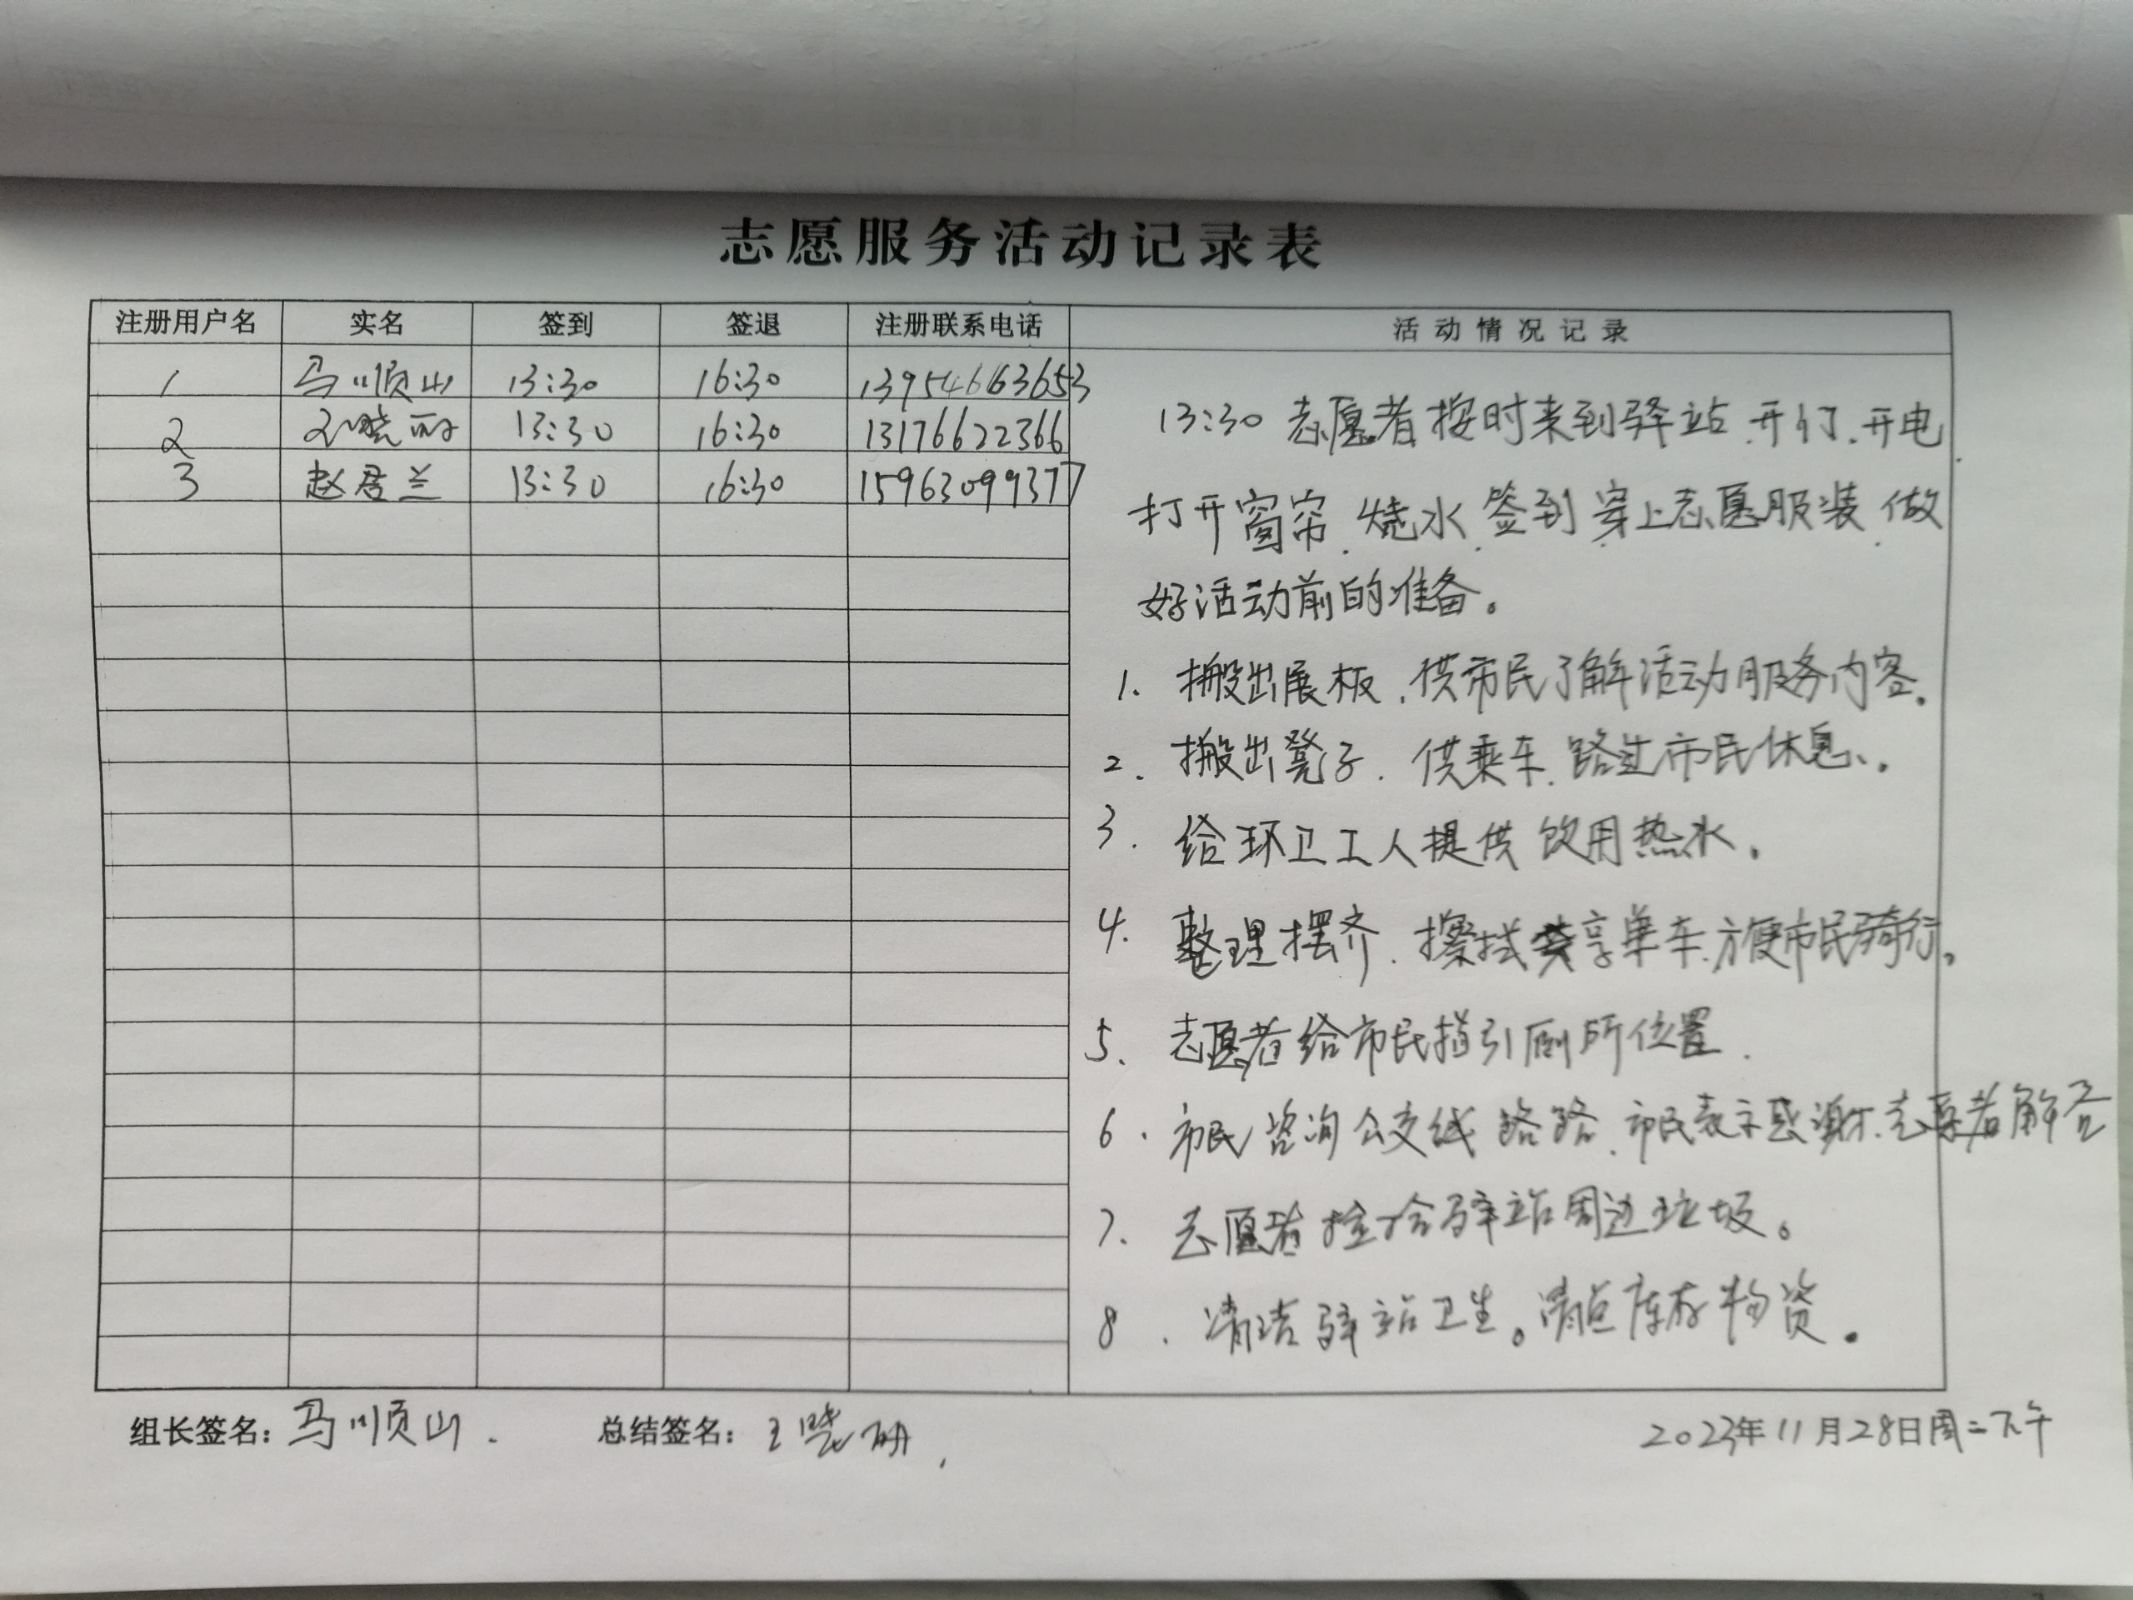 志愿服务活动记录表
注册用户名 实名 签到 签退 注册联系电话 活动情况记录
1 马顺山 13:30 16:30 13954663653
2 晓 13:30 16:30 13176622366
3 赵君兰 13:30 16:30 15963099377
13:30 志愿者按时来到驿站.开灯.开电.
打开窗帘.烧水.签到.穿上志愿服装.做
好活动前的准备。
1. 搬出展板.供市民了解活动服务内容。
2. 搬出凳子.供乘车.路过市民休息。
3. 给环卫工人提供饮用热水。
4. 整理摆齐.擦拭共享单车.方便市民骑行。
5. 志愿者给市民指引厕所位置.
6. 市民咨询公交线路路.市民表示感谢.志愿者解答
7. 志愿者捡拾驿站周边垃圾。
8. 清洁驿站卫生。清点库存物资。
组长签名：马顺山. 总结签名：王晓 2023年11月28日周二下午